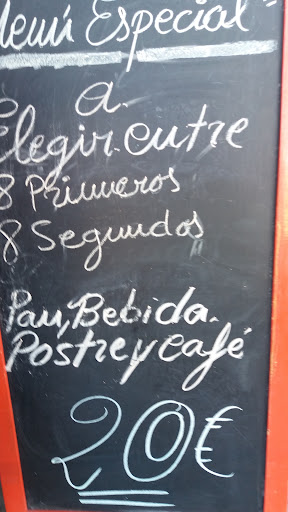 Menú Especial"
a
Elegir entre
8 Primeros
8 Segundos
Pan, Bebida.
Postre y café
20€